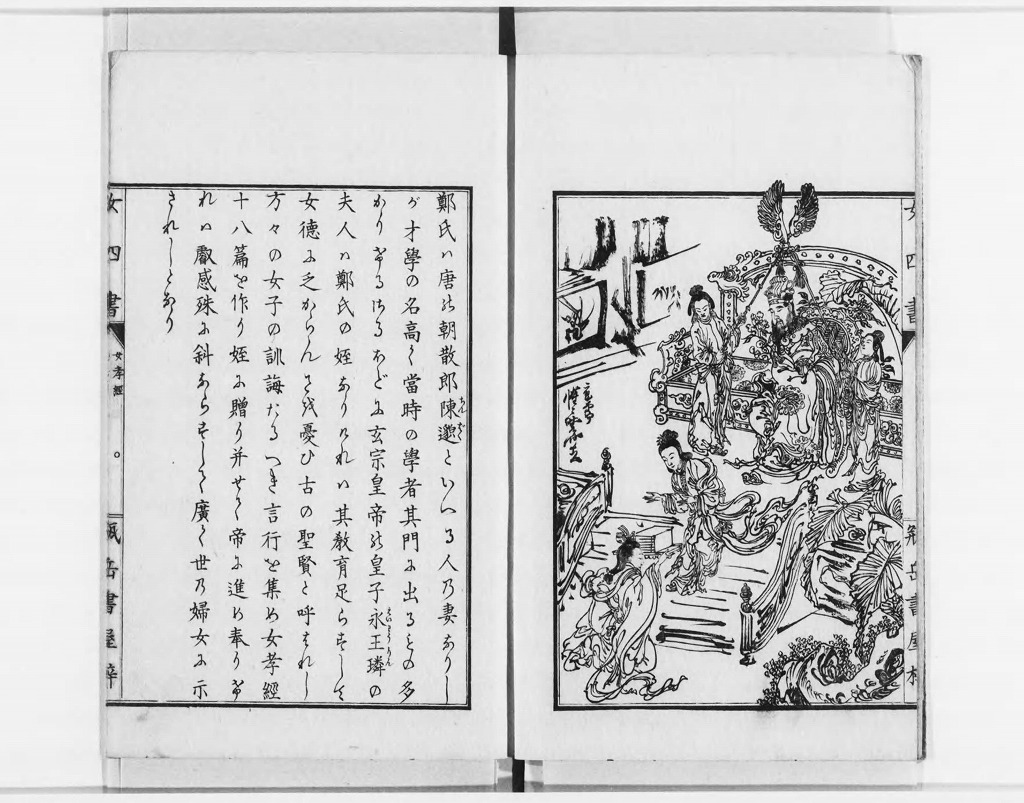 女四書
鄭氏ハ唐の朝散郎陳邈といへる人乃妻なりし
が才學の名高く當時の學者其門に出るもの多
かりけるほどに玄宗皇帝の皇子永王璘の
夫人ハ鄭氏の姪なりけれハ其教育足らずして
女徳に乏からんを憂ひ古の聖賢と呼はれし
方々の女子の訓誨たるへき言行を集め女孝經
十八篇を作り姪に贈り并せて帝に進め奉りけ
れハ叡感殊に斜ならずして廣く世乃婦女に示
されしとなり
女四書
女孝經
岳書屋梓